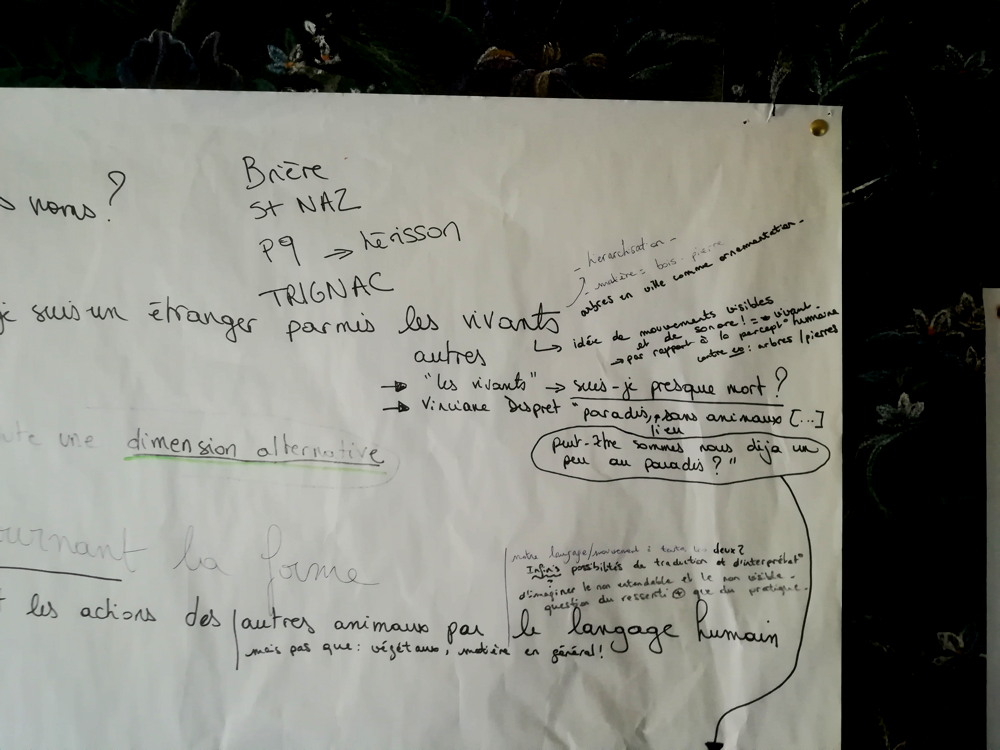 s noms?
Brière
St NAZ
P9 → hérisson
TRIGNAC
- hierarchisation -
- matière = bois - pierre
arbres en ville comme ornementation -
je suis un étranger parmis les vivants
autres
idée de mouvements visibles
et de sonore! = vivant -
→ pas rapport à la percept° humaine
contre : arbres / pierres
→ "les vivants" → suis-je presque mort?
→ Vinciane Despret "paradis, sans animaux [...]
lieu
peut-être sommes nous déja un
peu au paradis?"
une dimension alternative
ournant la forme
notre langage/mouvement : deux?
Infinis possibiltés de traduction et d'interprétat°
d'imaginer le non entendable et le non visible -
question du ressenti ⊕ que du pratique.
les actions des autres animaux par le langage humain
mais pas que : végétaux, matière en général!